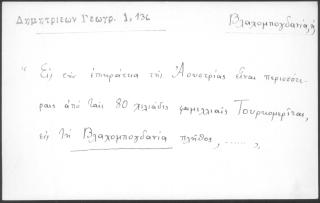 Δημητριέων Γεωγρ. 1, 136
Βλαχομπογδανία, ἡ
" Εἰς τὴν ἐπικράτεια τῆς Ἀουστρίας εἶναι περισσότε-
ραις ἀπὸ ταῖς 80 χιλιάδες φαμελλιαῖς Τουρκομερῖται,
εἰς τὴ Βλαχομπογδανία πλῆθος, ......,